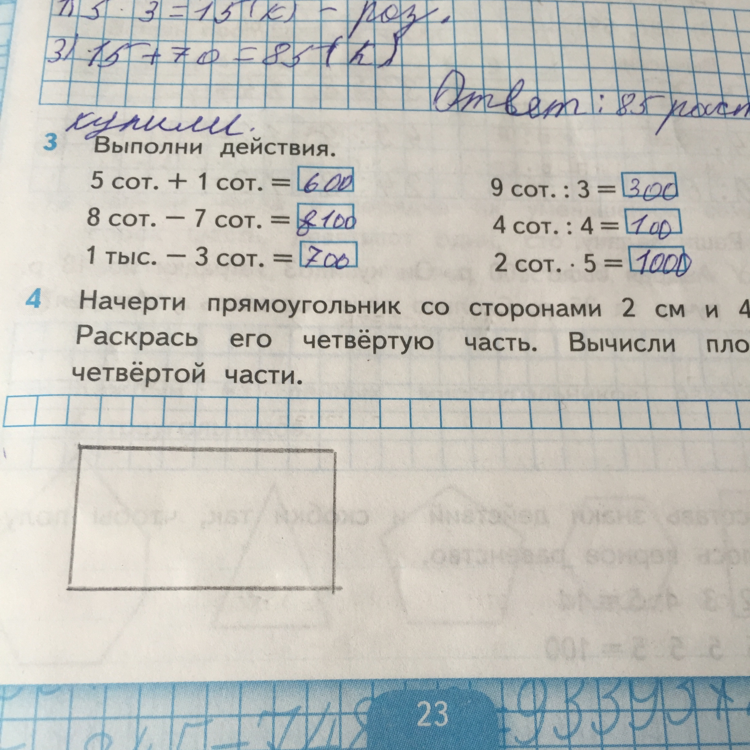 1) 5 · 3 = 15 (к) – роз.
3) 15 + 70 = 85 (к)
Ответ: 85 раст
купили.
3 Выполни действия.
5 сот. + 1 сот. = 600 9 сот. : 3 = 300
8 сот. − 7 сот. = 100 4 сот. : 4 = 100
1 тыс. − 3 сот. = 700 2 сот. · 5 = 1000
4 Начерти прямоугольник со сторонами 2 см и 4
Раскрась его четвёртую часть. Вычисли пло
четвёртой части.
23